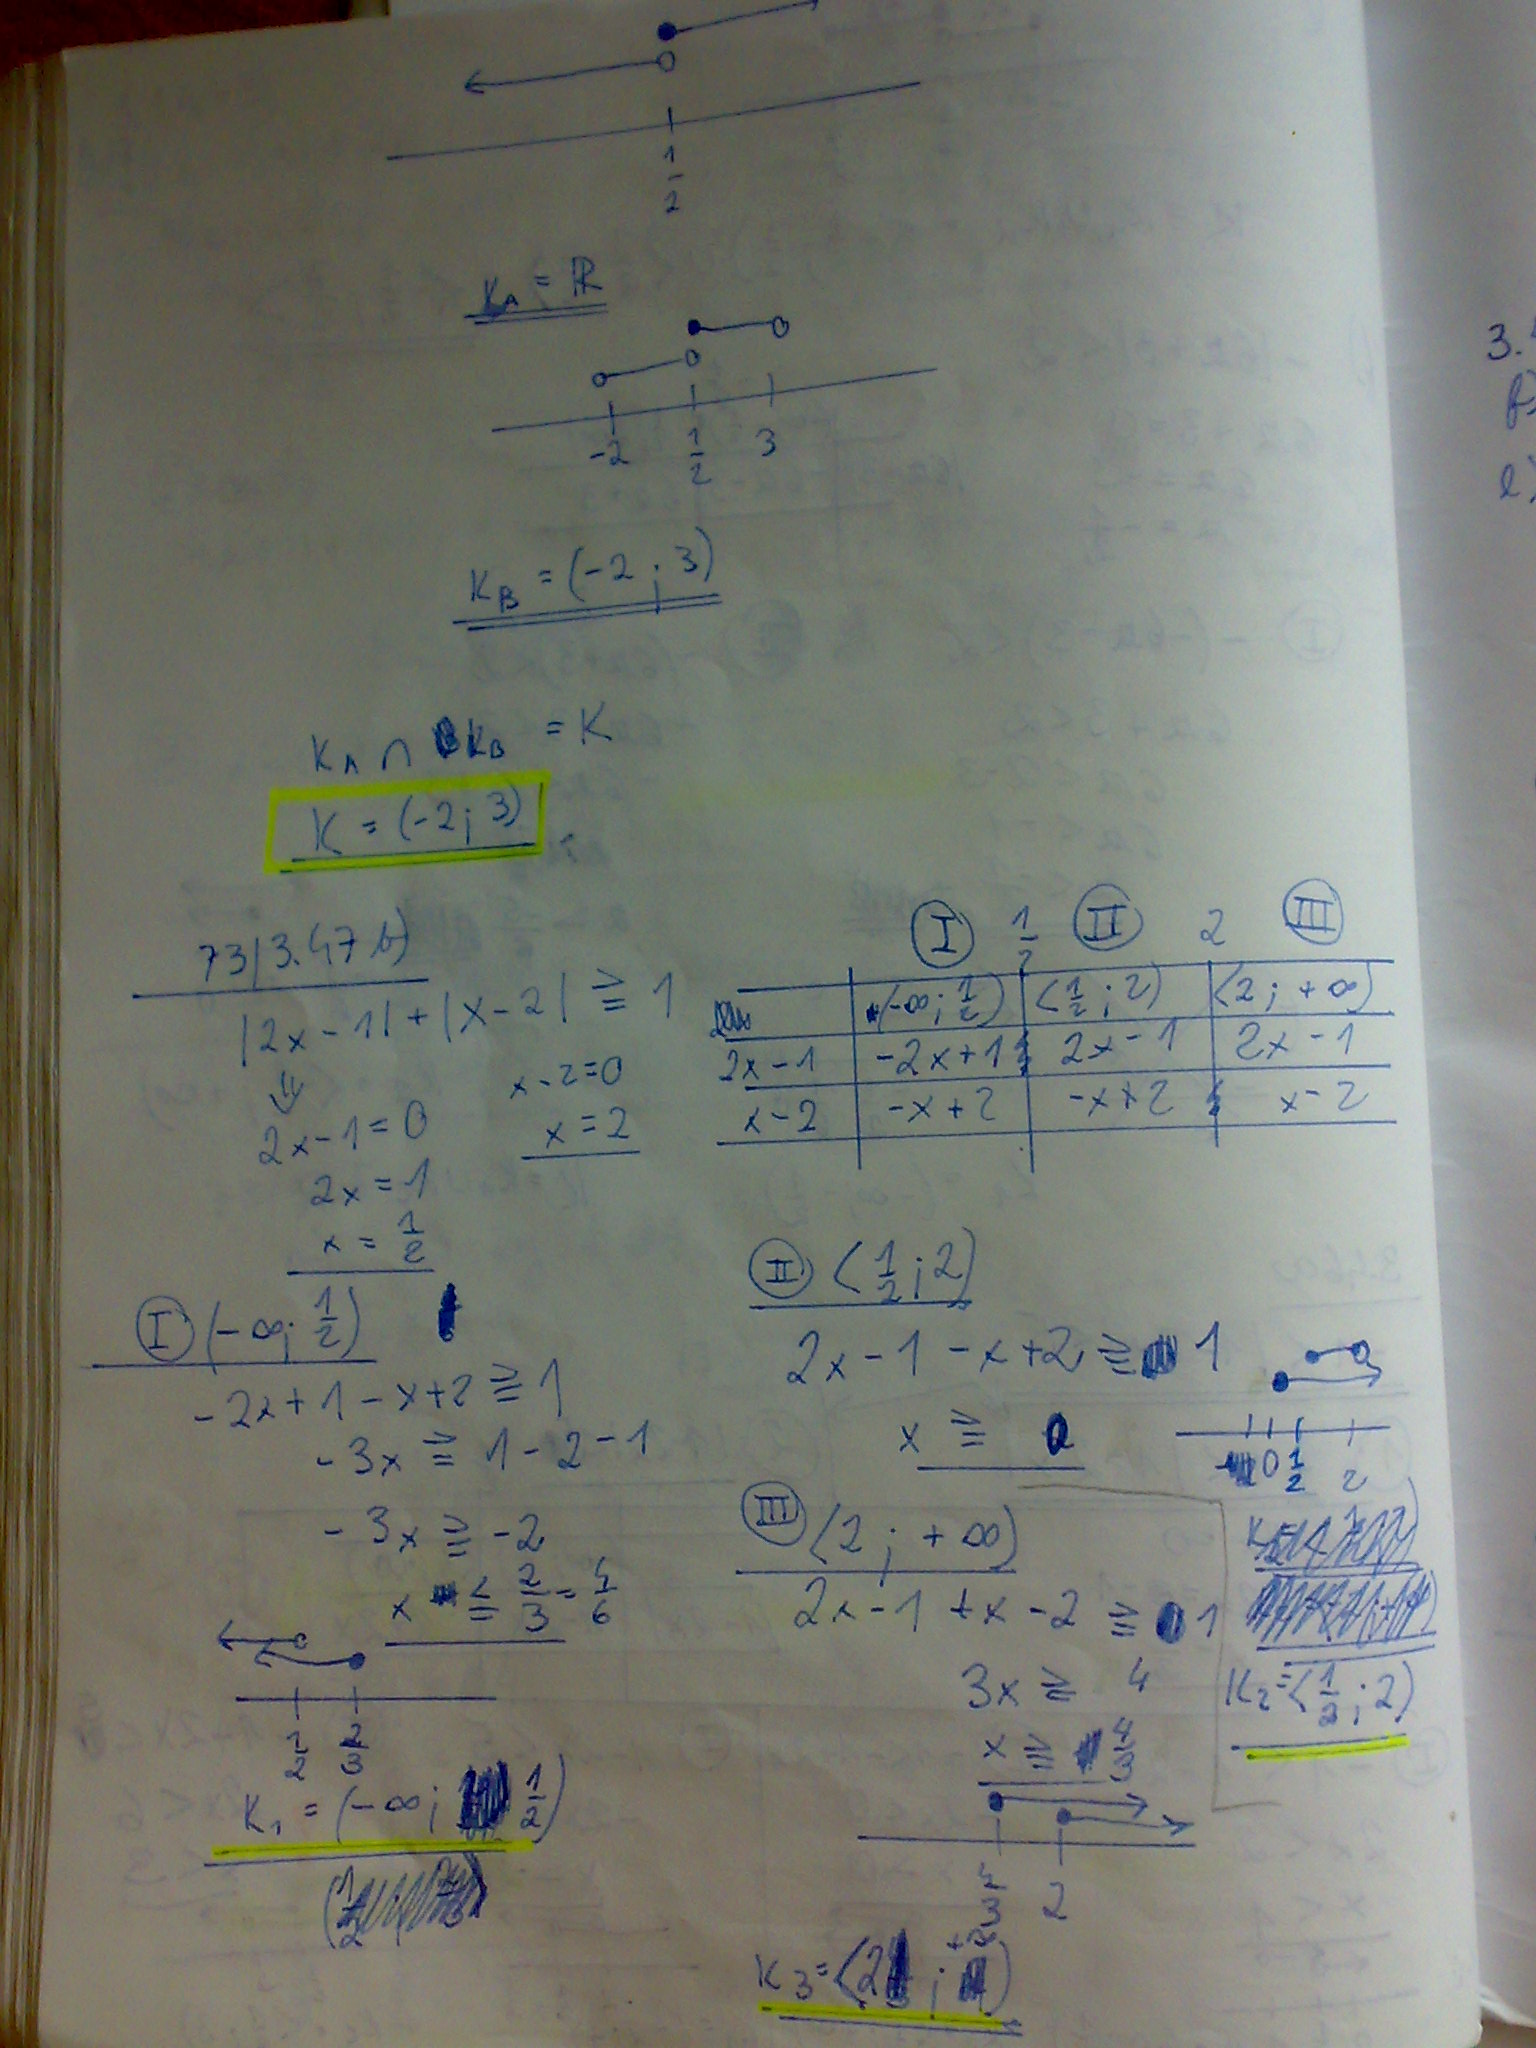 1/2
K_A = ℝ
-2 1/2 3
K_B = (-2 ; 3)
K_A ∩ K_B = K
K = (-2 ; 3)
73/3.47 b)
|2x - 1| + |x - 2| ≧ 1
2x - 1 = 0
2x = 1
x = 1/2
x - 2 = 0
x = 2
I 1/2 II 2 III
(-∞ ; 1/2) <1/2 ; 2) <2 ; +∞)
2x - 1 -2x + 1 2x - 1 2x - 1
x - 2 -x + 2 -x + 2 x - 2
I (-∞ ; 1/2)
-2x + 1 - x + 2 ≧ 1
-3x ≧ 1 - 2 - 1
-3x ≧ -2
x ≦ 2/3 = 4/6
1/2 2/3
K₁ = (-∞ ; 1/2)
II <1/2 ; 2)
2x - 1 - x + 2 ≧ 1
x ≧ 0
0 1/2 2
K₂ = <1/2 ; 2)
III <2 ; +∞)
2x - 1 + x - 2 ≧ 1
3x ≧ 4
x ≧ 4/3
4/3 2
K₃ = <2 ; +∞)
3.